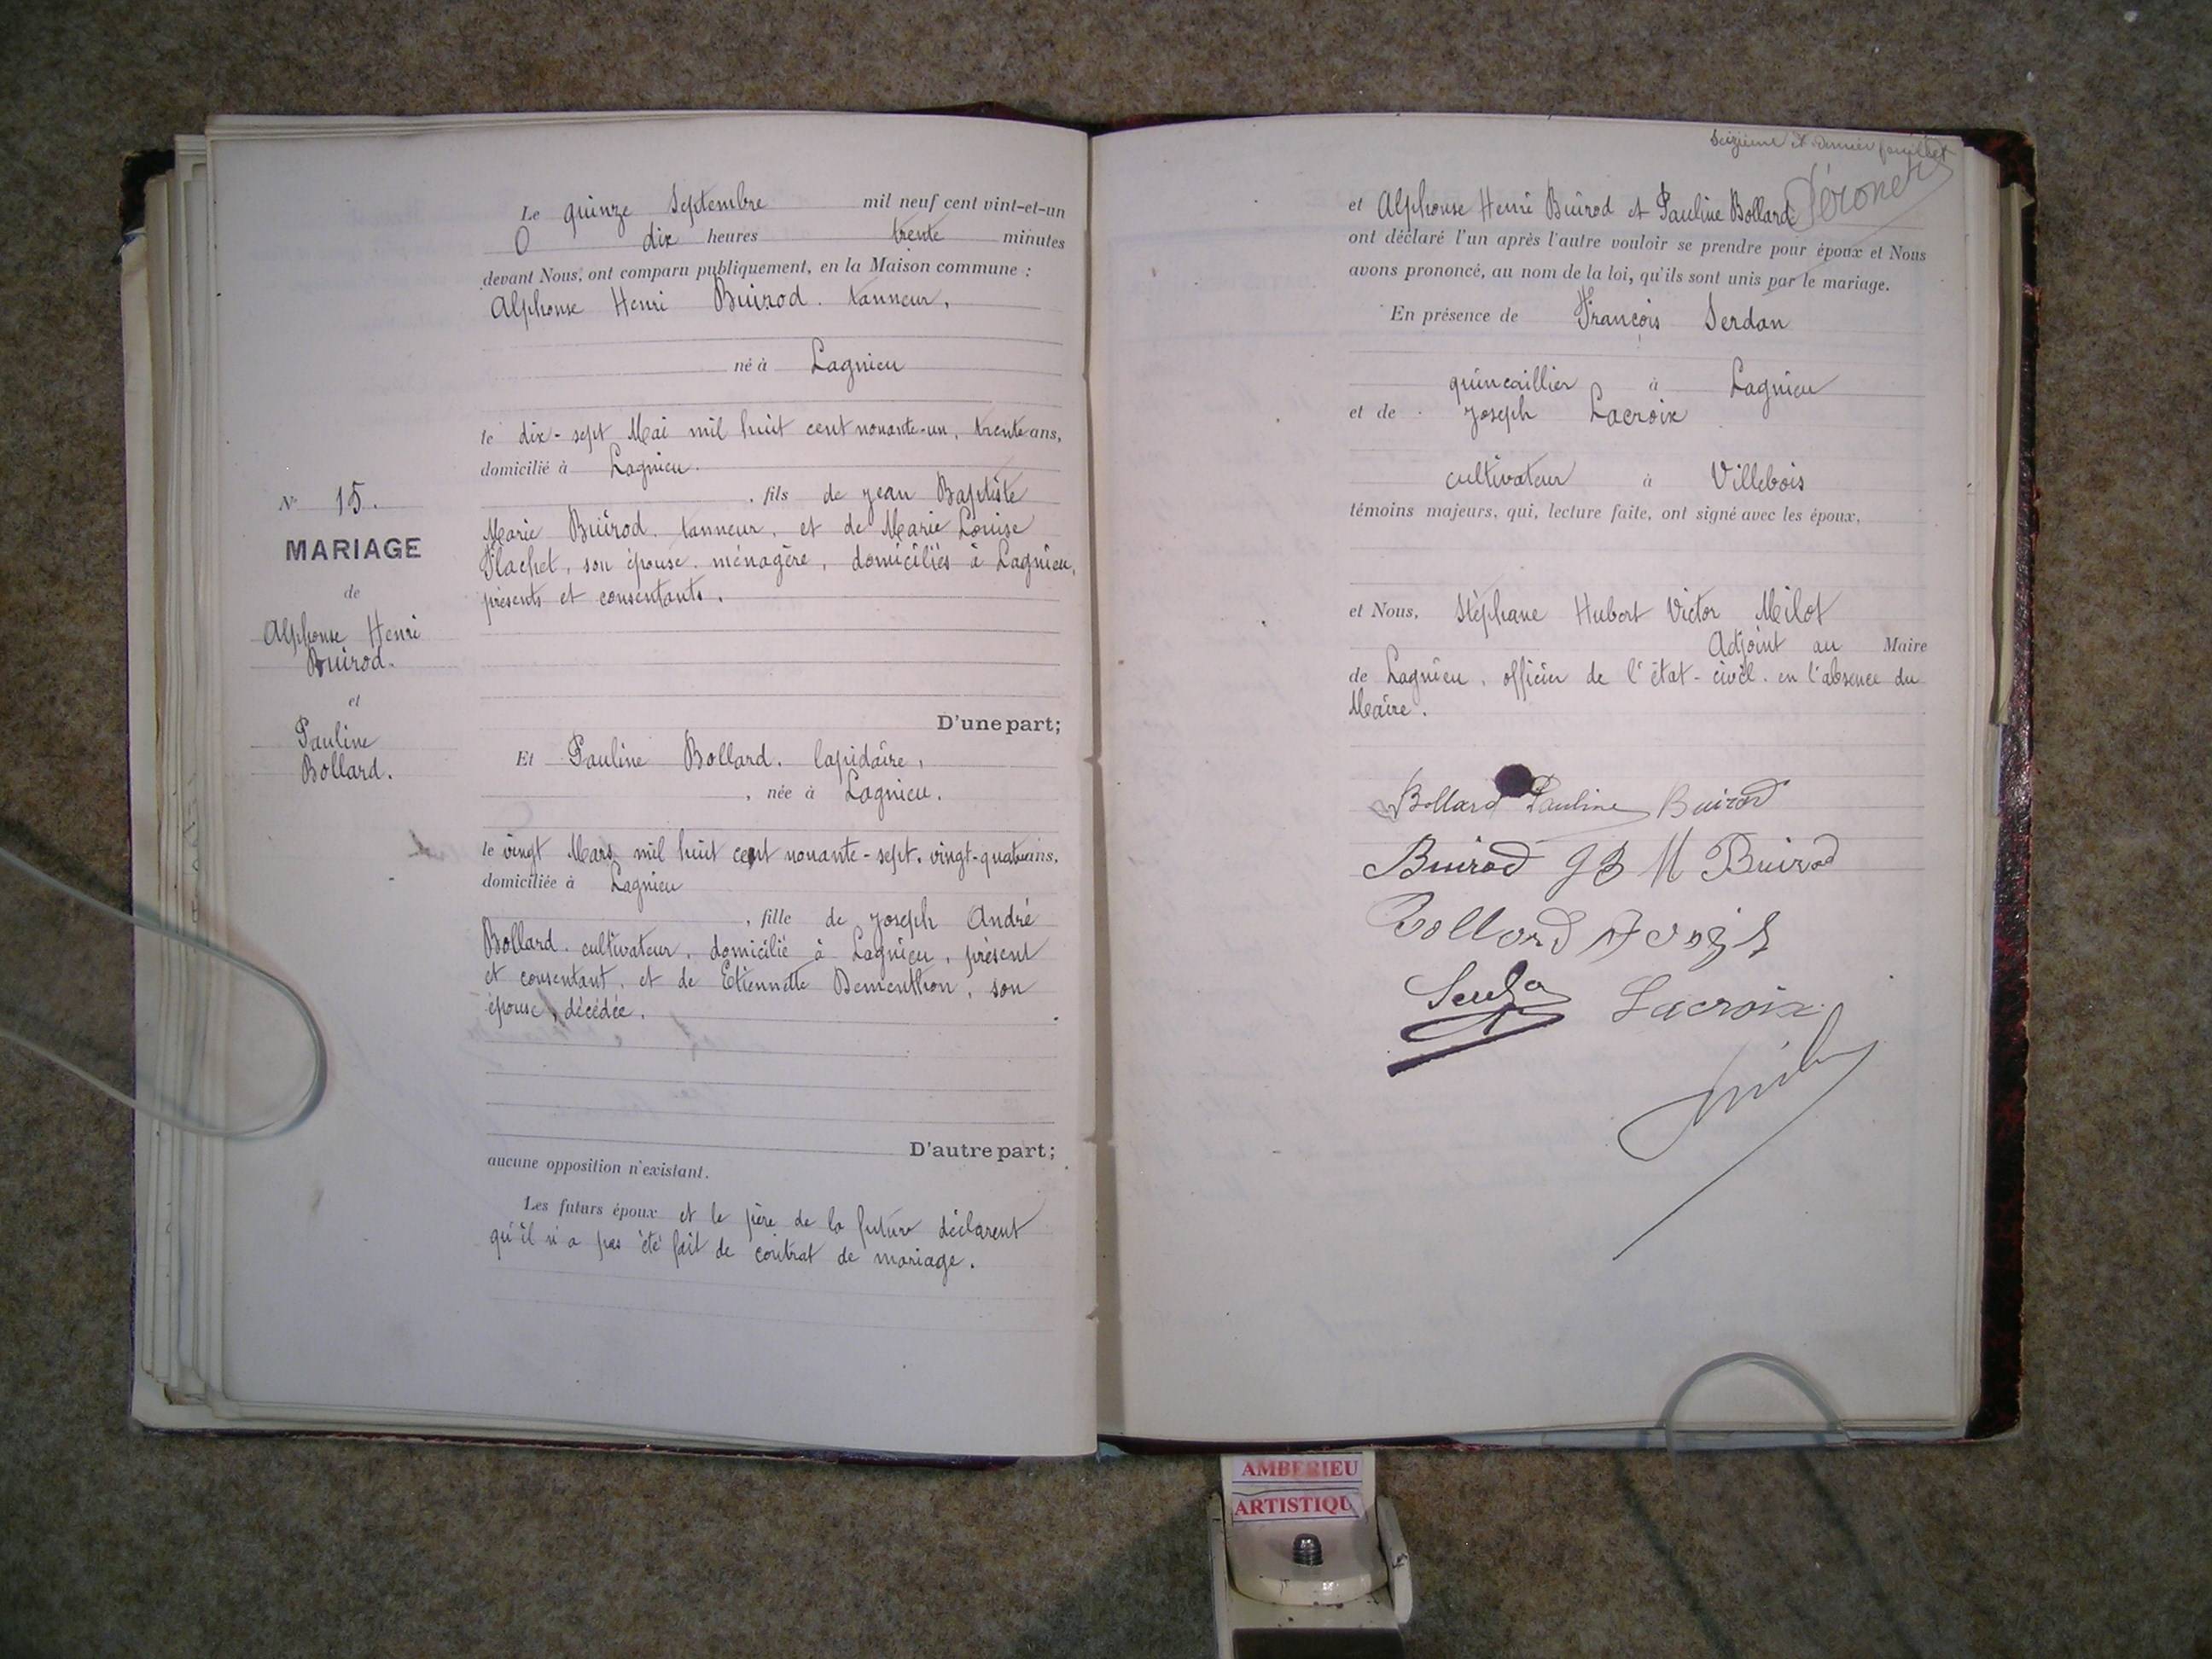 Le quinze Septembre mil neuf cent vint-et-un
O dix heures trente minutes
devant Nous, ont comparu publiquement, en la Maison commune :
Alphonse Henri Buirod. tanneur,
né à Lagnieu
le dix-sept Mai mil huit cent nonante-un, trente ans,
domicilié à Lagnieu.
, fils de Jean Baptiste
Marie Buirod. tanneur, et de Marie Louise
Flachet, son épouse. ménagère, domiciliés à Lagnieu,
présents et consentants.
N° 15.
MARIAGE
de
Alphonse Henri
Buirod.
et
Pauline
Bollard.
D'une part;
Et Pauline Bollard. lapidaire,
, née à Lagnieu.
le vingt Mars mil huit cent nonante-sept. vingt-quatre ans.
domiciliée à Lagnieu
, fille de Joseph André
Bollard. cultivateur, domicilié à Lagnieu, présent
et consentant, et de Etiennette Dementhon, son
épouse, décédée.
D'autre part;
aucune opposition n'existant.
Les futurs époux et le père de la future déclarent
qu'il n'a pas été fait de contrat de mariage.
Seizième et dernier feuillet
Péronet
et Alphonse Henri Buirod et Pauline Bollard
ont déclaré l'un après l'autre vouloir se prendre pour époux et Nous
avons prononcé, au nom de la loi, qu'ils sont unis par le mariage.
En présence de François Serdan
quincaillier à Lagnieu
et de Joseph Lacroix
cultivateur à Villebois
témoins majeurs, qui, lecture faite, ont signé avec les époux,
et Nous, Stéphane Hubert Victor Milot
Adjoint au Maire
de Lagnieu, officier de l'état-civil. en l'absence du
Maire.
Bollard Pauline Buirod
Buirod J B M Buirod
Bollard
Lacroix
AMBERIEU
ARTISTIQU